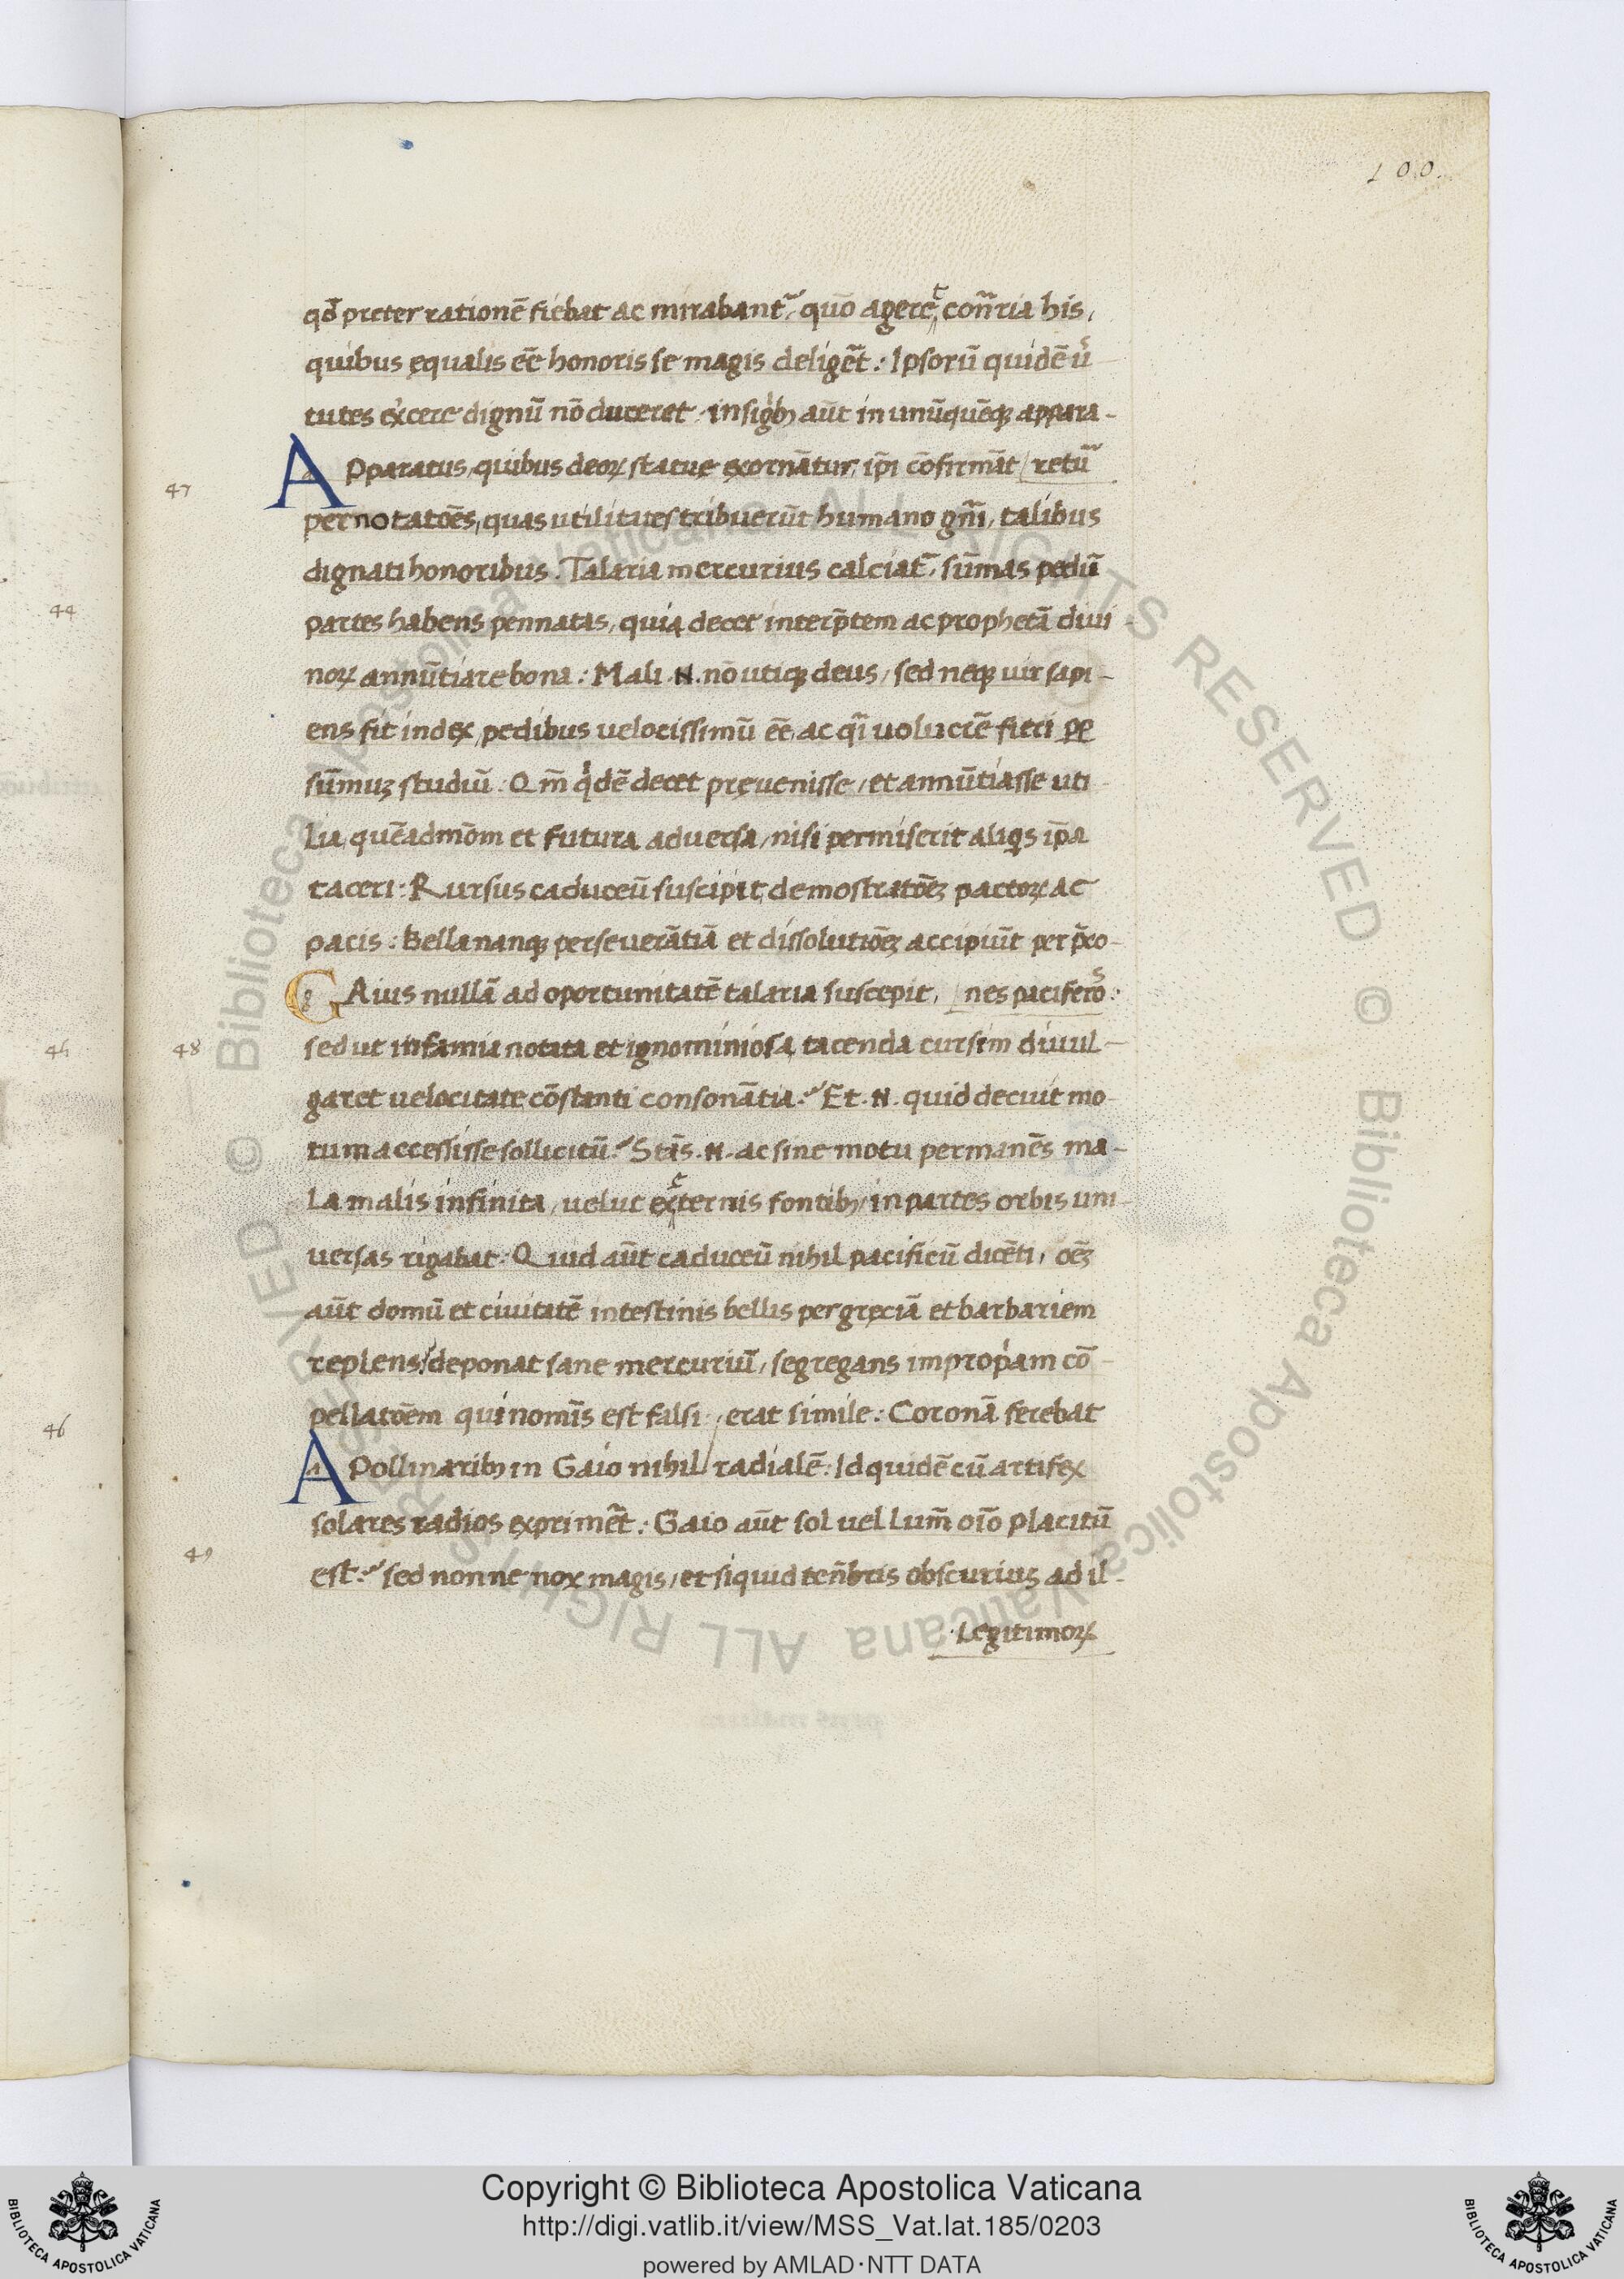 100.
qđ preter rationē fiebat ac mirabant᷑, quō ageret cōn̄ria his,
quibus ęqualis eē honoris se magis deliget᷑: Ipsorū quidē uͥ
tutes ex̾cere dignū nō duceret. insigͥbȝ aūt in unūquēqȝ appara-
APparatus, quibus deoꝝ statuę exornātur, ip̄i cōfirmāt retū
47
pernotatōēs, quas utilitues tribuerūt humano gn̄i, talibus
dignati honoribus. Talaria mercurius calciat᷑, sūmas pedū
44
partes habens pennatas, quia decet interp̄tem ac prophetā diui
noꝝ annūtiare bona: Mali .N. nō utiqȝ deus, sed neqȝ uir sapi-
ens fit index, pedibus uelocissimū eē, ac qͣi uolucrē fieri ꝓꝑ
sūmuȝ studiū. Qm̄ qͥdē decet pręuenisse, et annūtiasse uti
lia, quēadmōm et futura aduersa, nisi permiserit aliqͥs ip̄a
taceri: Rursus caduceū suscipit, demostratōēȝ pactoꝝ ac
pacis: Bella nanqȝ perseuerātiā et dissolutiōēȝ accipiūt per p̄co-
GAius nullā ad oportunitatē talaria suscepit, nes paciferos:
sed ut infamia notata et ignominiosa, tacenda cursim diuul-
45
48
garet uelocitate cōstanti consonātia: Et .N. quid decuit mo-
tum accessisse sollicitū: Stās .N. ac sine motu permanēs ma-
la malis infinita, uelut ex ternis fontibȝ, in partes orbis uni-
uersas rigabat: Quid aūt caduceū nihil pacificū dicēti, oēȝ
aūt domū et ciuitatē intestinis bellis per gręciā et barbariem
replens: deponat sane mercuriū, segregans impropͥam cō-
pellatōēm qui nomīs est falsi: erat simile: Coronā ferebat
46
APollinaribȝ in Gaio nihil radialē: Id quidē cū artifex
solares radios exprimet᷑: Gaio aūt sol uel lum̄ oīo placitū
49
est: sed nonne nox magis, et siquid ten̄bris obscurius ad il-
·Legitimoꝝ
Copyright © Biblioteca Apostolica Vaticana
http://digi.vatlib.it/view/MSS_Vat.lat.185/0203
powered by AMLAD·NTT DATA
BIBLIOTECA APOSTOLICA VATICANA
BIBLIOTECA APOSTOLICA VATICANA
© Biblioteca Apostolica Vaticana ALL RIGHTS RESERVED © Biblioteca Apostolica Vaticana ALL RIGHTS RESERVED